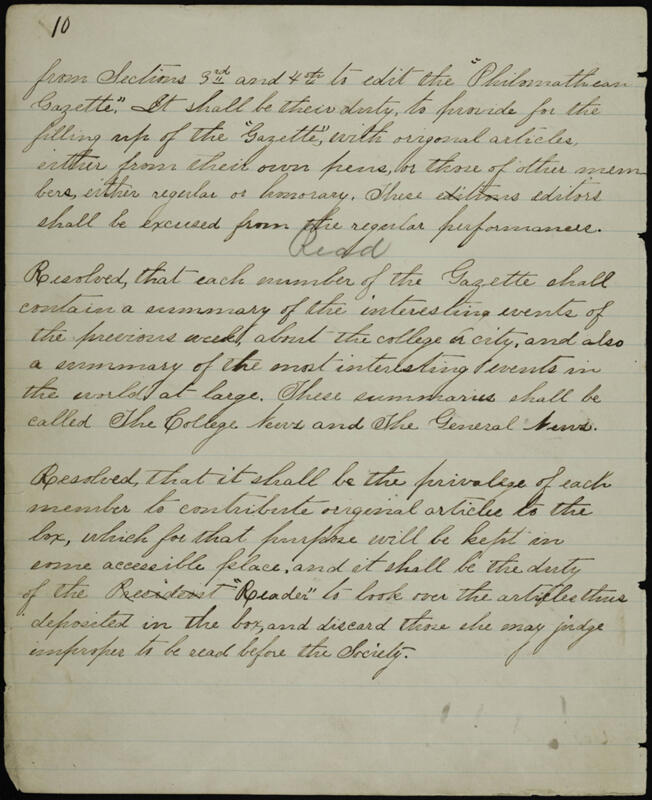 10
from Sections 3rd and 4th to edit the "Philomathean
Gazette". It shall be their duty, to provide for the
filling up of the "Gazette", with origonal articles,
either from their own pens, or those of other mem-
bers, either regular or honorary. These editions editors
shall be excused from the regular performances.
Read
Resolved, that each number of the Gazette shall
contain a summary of the interesting events of
the previous week, about the college & city, and also
a summary of the most interesting events in
the world, at large. These summaries shall be
called The College News and The General News.
Resolved, that it shall be the privalege of each
member to contribute original articles to the
box, which for that purpose will be kept in
some accessible place, and it shall be the duty
of the President "Reader" to look over the articles thus
deposited in the box, and discard those she may judge
improper to be read before the Society.